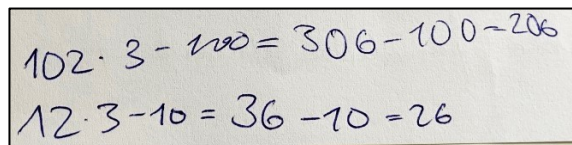 102· 3 - 100 = 306 - 100 = 206
12·3 - 10 = 36 - 10 = 26